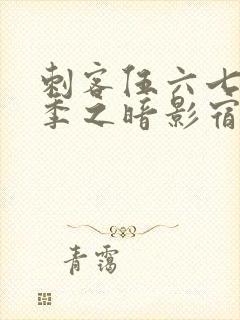 刺客伍六七
季之暗影宿
青霭